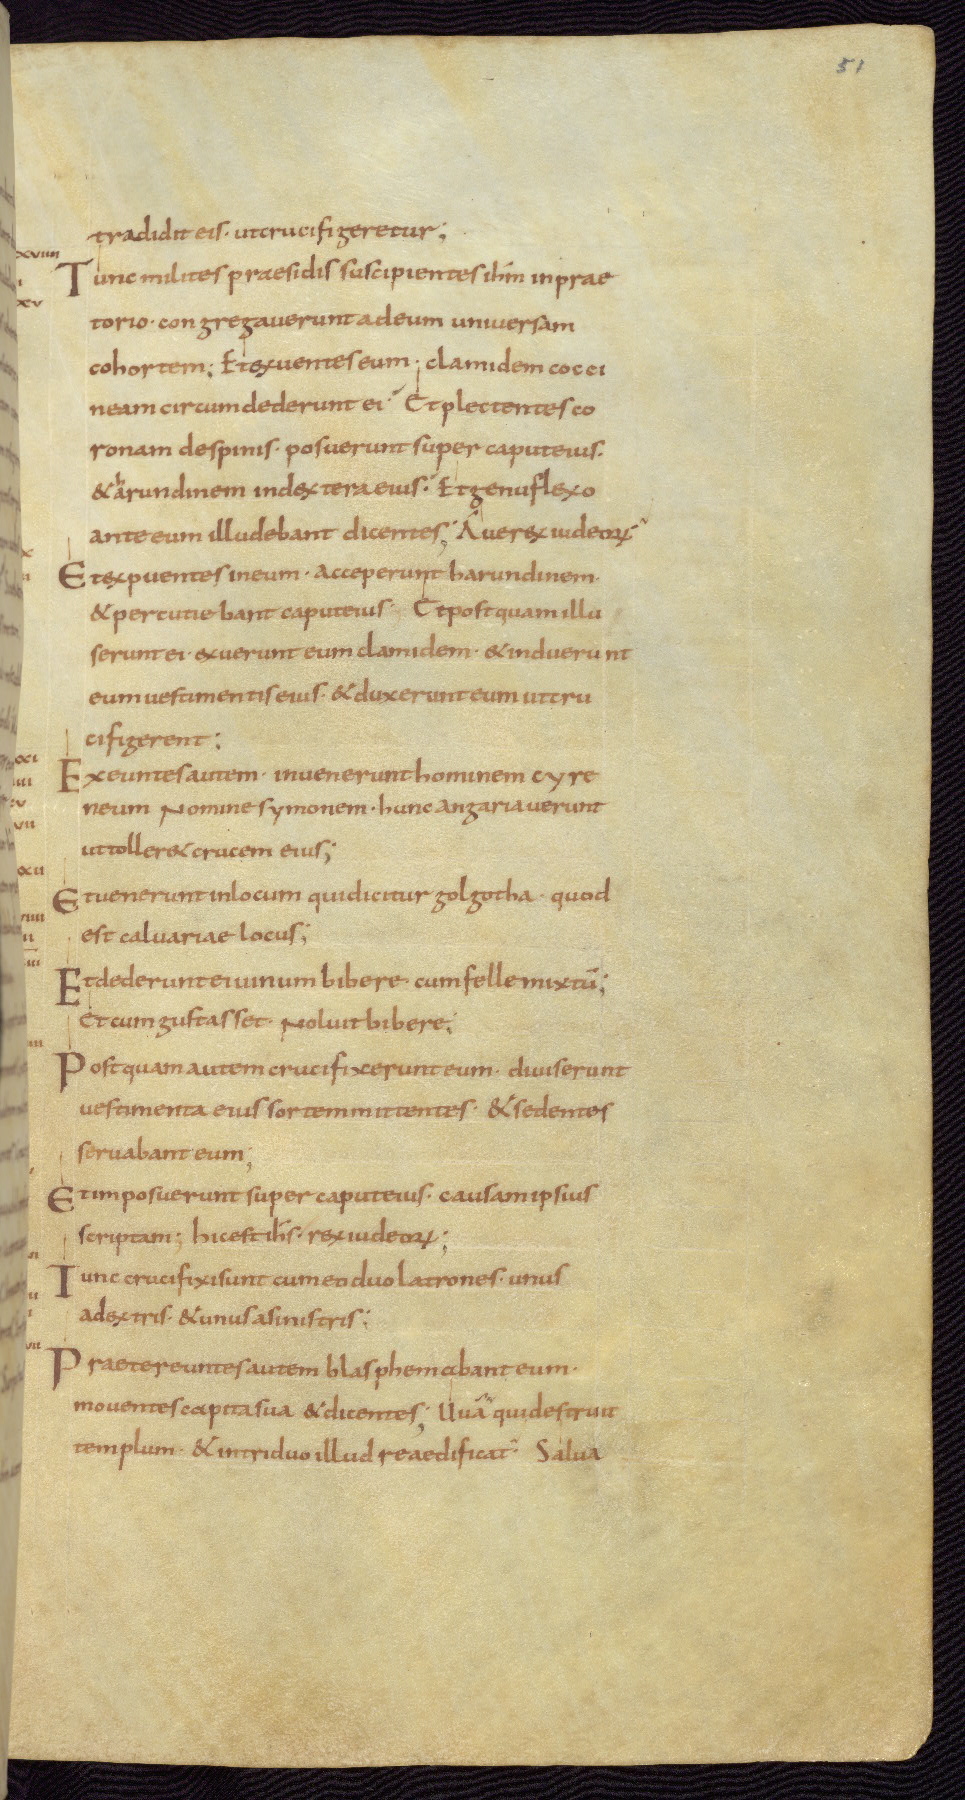 51
tradidit eis · ut crucifigeretur;
Tunc milites praesidis suscipientes ihm̄ in prae
torio · congregaverunt ad eum universam
cohortem; Et exuentes eum · clamidem cocci
neam circumdederunt ei · Et plectentes co
ronam de spinis · posuerunt super caput eius ·
& harundinem in dextera eius · Et genu flexo
ante eum illudebant dicentes; Ave rex iudeoꝝ
Et expuentes in eum · acceperunt harundinem ·
& percutiebant caput eius · Et postquam illu
serunt ei · exuerunt eum clamidem · & induerunt
eum vestimentis eius · & duxerunt eum ut cru
cifigerent;
Exeuntes autem · invenerunt hominem cyre
neum Nomine symonem · hunc angariaverunt
ut toller& crucem eius;
Et venerunt in locum qui dicitur golgotha · quod
est calvariae locus;
Et dederunt ei vinum bibere · cum felle mixtū;
Et cum gustasset · Noluit bibere;
Postquam autem crucifixerunt eum · diviserunt
vestimenta eius sortem mittentes · & sedentes
servabant eum;
Et imposuerunt super caput eius · causam ipsius
scriptam; hic est ihs · rex iudeoꝝ;
Tunc crucifixi sunt cum eo duo latrones · unus
a dextris · & unus a sinistris;
Praetereuntes autem blasphemabant eum ·
moventes capita sua & dicentes; Uuā qui destruit
templum · & in triduo illud reaedificat · Salva